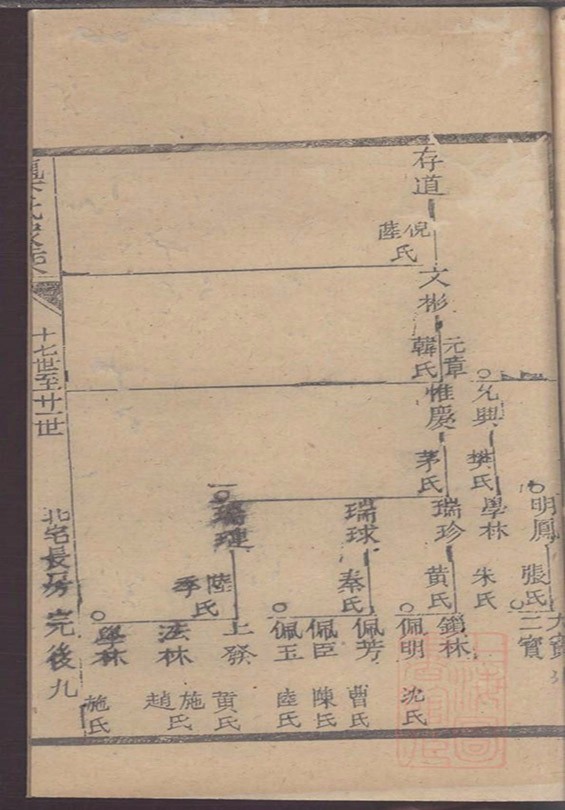 存道
倪陸氏
文彬
元章
韓氏
允興
惟慶
樊氏
茅氏
明鳳
學林
瑞珍
瑞球
瑞璉
張氏
朱氏
黄氏
秦氏
陸季氏
大寶
二寶
鎖林
佩明
佩芳
佩臣
佩玉
上發
法林
學林
沈氏
曹氏
陳氏
陸氏
黄氏
施趙氏
施氏
十七世至廿一世
北宅長房 完後九